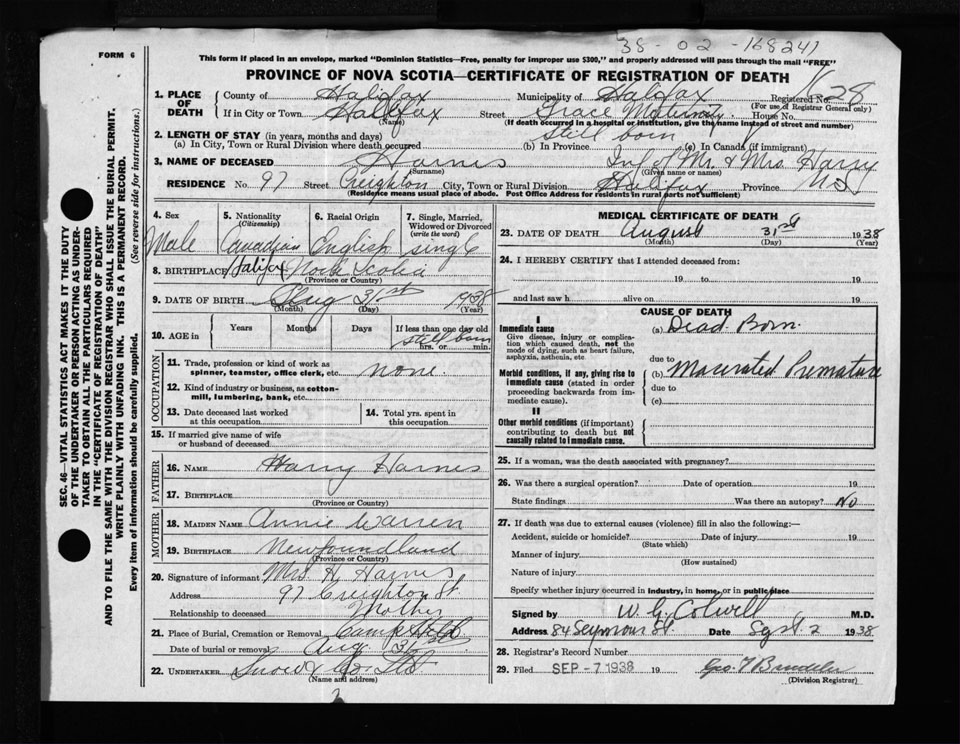 38-02-168241
FORM 6
This form if placed in an envelope, marked "Dominion Statistics—Free, penalty for improper use $300," and properly addressed will pass through the mail "FREE"
PROVINCE OF NOVA SCOTIA—CERTIFICATE OF REGISTRATION OF DEATH
SEC. 46—VITAL STATISTICS ACT MAKES IT THE DUTY
OF THE UNDERTAKER OR PERSON ACTING AS UNDER-
TAKER TO OBTAIN ALL THE PARTICULARS REQUIRED
IN THE "CERTIFICATE OF REGISTRATION OF DEATH"
AND TO FILE THE SAME WITH THE DIVISION REGISTRAR WHO SHALL ISSUE THE BURIAL PERMIT.
WRITE PLAINLY WITH UNFADING INK. THIS IS A PERMANENT RECORD.
Every item of information should be carefully supplied. (See reverse side for instructions.)
1. PLACE OF DEATH
County of Halifax Municipality of Halifax Registered No. 1628
(For use of Registrar General only)
If in City or Town Halifax Street Grace Maternity House No.
(Name) (If death occurred in a hospital or institution, give the name instead of street and number)
2. LENGTH OF STAY (in years, months and days) Still born
(a) In City, Town or Rural Division where death occurred (b) In Province (c) In Canada (if immigrant)
3. NAME OF DECEASED Harnis Inf of Mr. & Mrs. Harry
(Surname) (Given name or names)
RESIDENCE No. 97 Street Creighton City, Town or Rural Division Halifax Province N.S
(Residence means usual place of abode. Post Office Address for residents in rural parts not sufficient)
4. Sex Male
5. Nationality (Citizenship) Canadian
6. Racial Origin English
7. Single, Married, Widowed or Divorced (write the word) single
8. BIRTHPLACE Halifax Nova Scotia
(Province or Country)
9. DATE OF BIRTH Aug 31st 1938
(Month) (Day) (Year)
10. AGE in Years Months Days If less than one day old
still born
hrs. or min.
OCCUPATION
11. Trade, profession or kind of work as
spinner, teamster, office clerk, etc. none.
12. Kind of industry or business, as cotton-
mill, lumbering, bank, etc.
13. Date deceased last worked
at this occupation
14. Total yrs. spent in
this occupation.
15. If married give name of wife
or husband of deceased
FATHER
16. NAME Harry Harnis
17. BIRTHPLACE
(Province or Country)
MOTHER
18. MAIDEN NAME Annie Warren
19. BIRTHPLACE Newfoundland
(Province or Country)
20. Signature of informant Mrs H. Harnis
97 Creighton St.
Relationship to deceased Mother
21. Place of Burial, Cremation or Removal Camp Hill
Date of burial or removal Aug 31
22. UNDERTAKER Snow & Co. Ltd
(Name and address)
MEDICAL CERTIFICATE OF DEATH
23. DATE OF DEATH August 31st 1938
(Month) (Day) (Year)
24. I HEREBY CERTIFY that I attended deceased from:
19 to 19
and last saw h alive on 19
CAUSE OF DEATH
I
Immediate cause (a) Dead Born.
Give disease, injury or complica-
tion which caused death, not the
mode of dying, such as heart failure,
asphyxia, asthenia, etc.
due to
Morbid conditions, if any, giving rise to (b) Macerated Premature
immediate cause (stated in order due to
proceeding backwards from im- (c)
mediate cause).
II
Other morbid conditions (if important)
contributing to death but not
causally related to immediate cause.
25. If a woman, was the death associated with pregnancy?
26. Was there a surgical operation? Date of operation 19
State findings Was there an autopsy? No
27. If death was due to external causes (violence) fill in also the following:—
Accident, suicide or homicide? Date of injury 19
(State which)
Manner of injury
(How sustained)
Nature of injury
Specify whether injury occurred in industry, in home, or in public place
Signed by W. G. Colwell M.D.
Address 84 Seymour St. Date Sept. 2 1938
28. Registrar's Record Number
29. Filed SEP -7 1938 19
(Division Registrar)